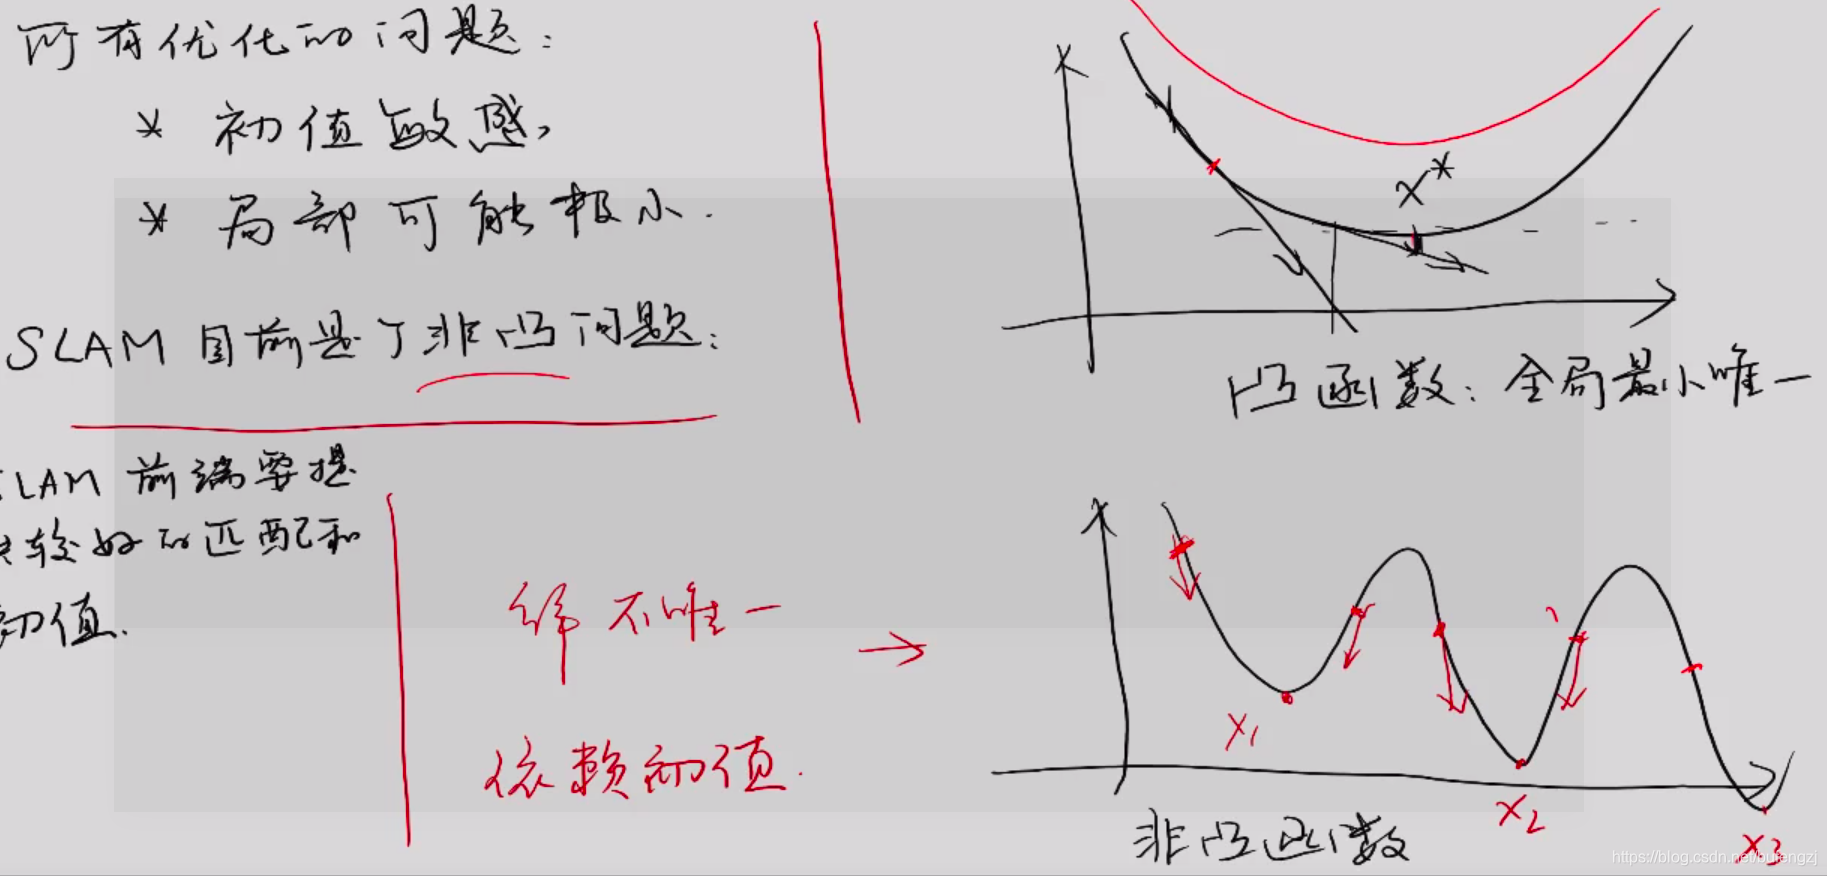 所有优化的问题:
* 初值敏感,
* 局部可能极小.
SLAM 目前是个非凸问题:
SLAM 前端要提
供较好的匹配和
初值.
解不唯一 →
依赖初值.
x*
凸函数: 全局最小唯一
x1
x2
x3
非凸函数
https://blog.csdn.net/bufengzj